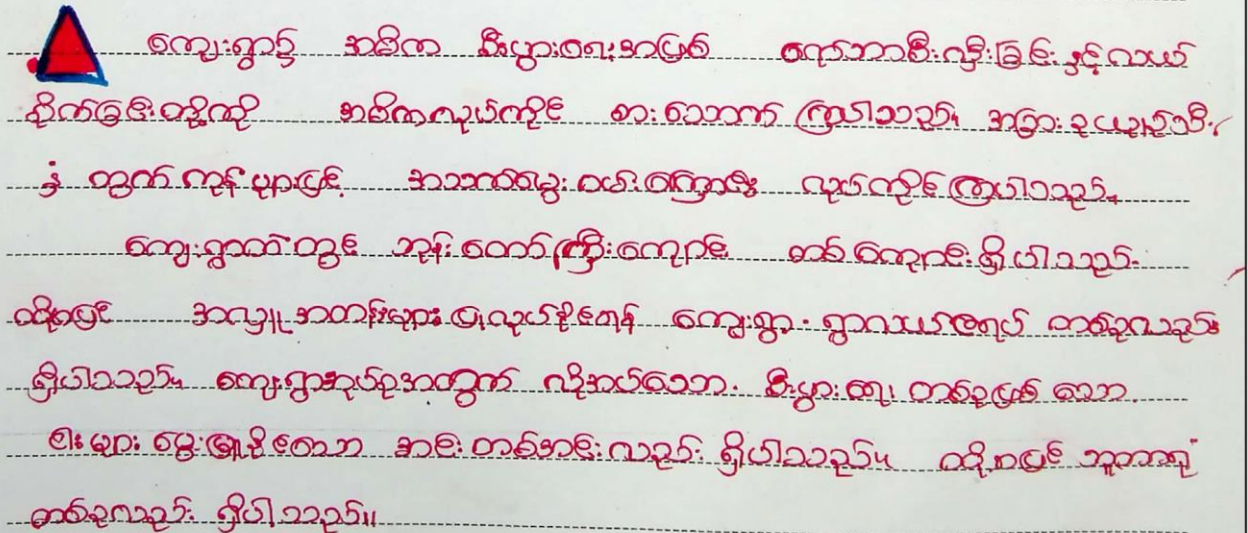 ကျေးရွာ၌ အဓိက စီးပွားရေးအဖြစ် ရော်ဘာစီးလှီးခြင်း နှင့်လယ်
စိုက်ခြင်းတို့ကို အဓိကလုပ်ကိုင် စားသောက် ကြပါသည်။ အခြား
ထွက်ကုန် များဖြင့် အသက်မွေး ဝမ်းကြောင်း လုပ်ကိုင်ကြပါသည်။
ကျေးရွာထဲတွင် ဘုန်းတော်ကြီးကျောင်း တစ်ကျောင်းရှိပါသည်။
ထို့ပြင် အလှူအတန်းများ ပြုလုပ်နိုင်ရန် ကျေးရွာ တစ်ခုလည်း
ရှိပါသည်။ ကျေးရွာအုပ်စုအတွက် လိုအပ်သော စီးပွားရေး တစ်ခုဖြစ် သော
ငါး များ မွေးမြူနိုင်သော အင်း တစ်အင်းလည်း ရှိပါသည်။ ထို့အပြင် ဘူတာရုံ
တစ်ခုလည်း ရှိပါသည်။